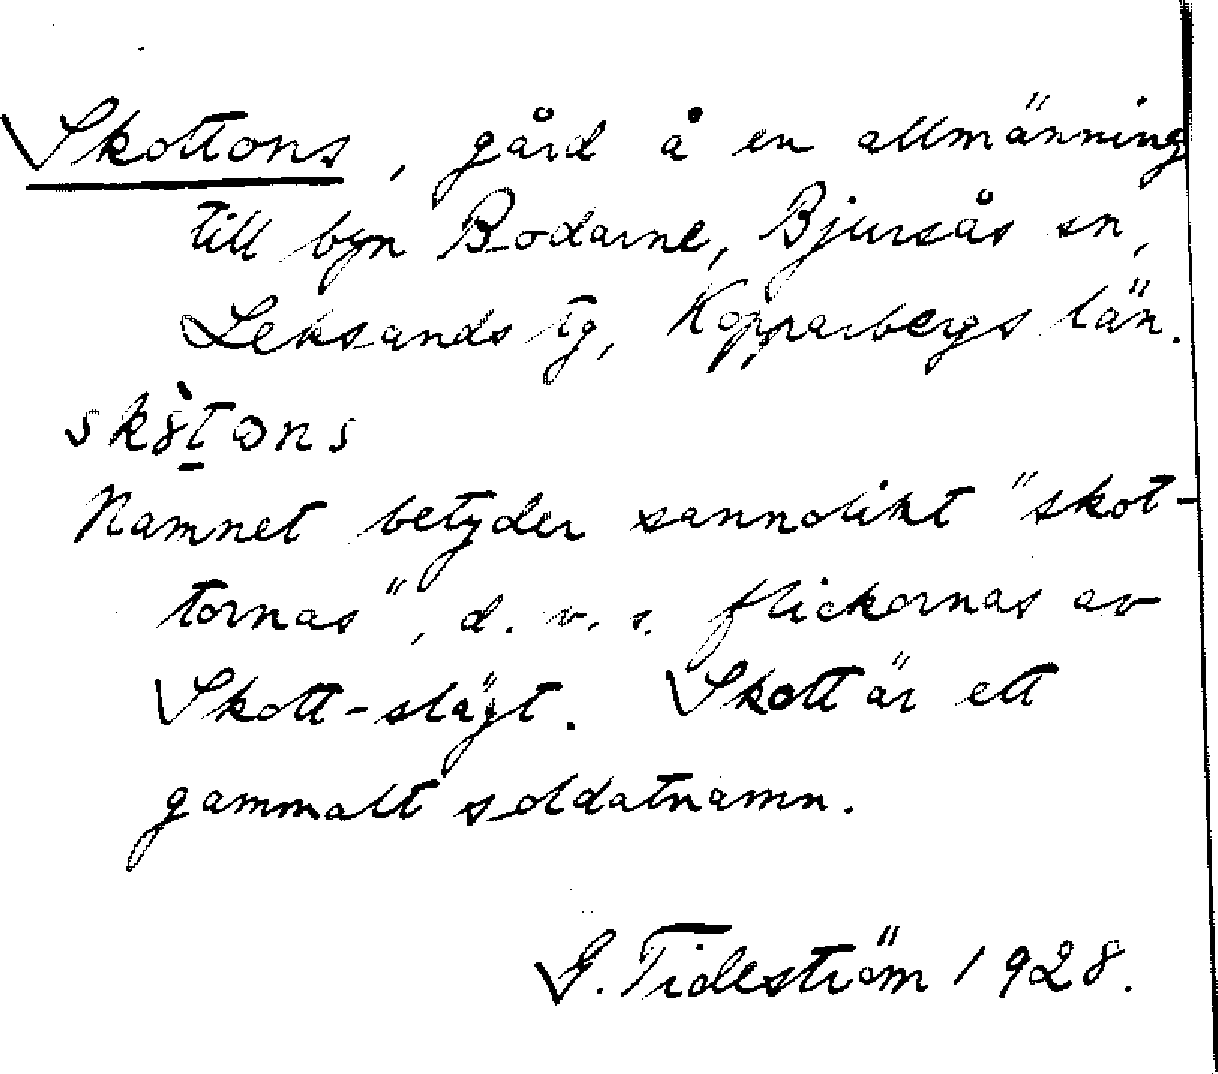 Skottons, gård å en allmänning
till byn Bodarne, Bjursås sn,
Leksands tg, Kopparbergs län.
Namnet betyder sannolikt "skot-
tornas", d. v. s. flickornas av
Skott-släkt. Skott är ett
gammalt soldatnamn.
G. Tideström 1928.